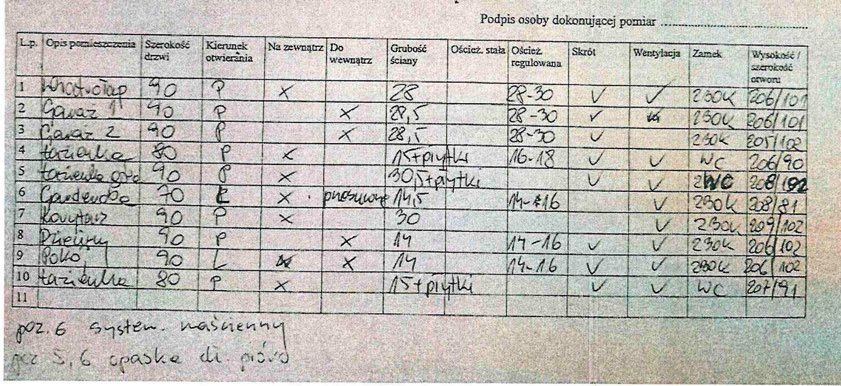 Podpis osoby dokonującej pomiar
L.p. Opis pomieszczenia Szerokość drzwi Kierunek otwierania Na zewnątrz Do wewnątrz Grubość ściany Oścież. stała Oścież. regulowana Skrót Wentylacja Zamek Wysokość / szerokość otworu
1 90 P × 28 28-30 ✓ ✓ 230K 206/101
2 Garaż 1 90 P × 28,5 28-30 ✓ 230K 206/101
3 Garaż 2 90 P × 28,5 28-30 ✓ 230K 205/102
4 Łazienka 80 P × 15+płytki 16-18 ✓ ✓ WC 206/90
5 Łazienka 90 P × 30,5+płytki ✓ ✓ WC 208/92
6 Garderoba 70 × 14,5 14-16 ✓ 230K 208/81
7 Korytarz 90 P × 30 ✓ 230K 209/102
8 90 P × 14 14-16 ✓ ✓ 230K 206/102
9 Pokój 90 L × 14 14-16 ✓ ✓ 230K 206/102
10 Łazienka 80 P × 15+płytki ✓ ✓ WC 207/91
11
poz. 6 system. naścienny
poz 5, 6 opaska dł. pióro